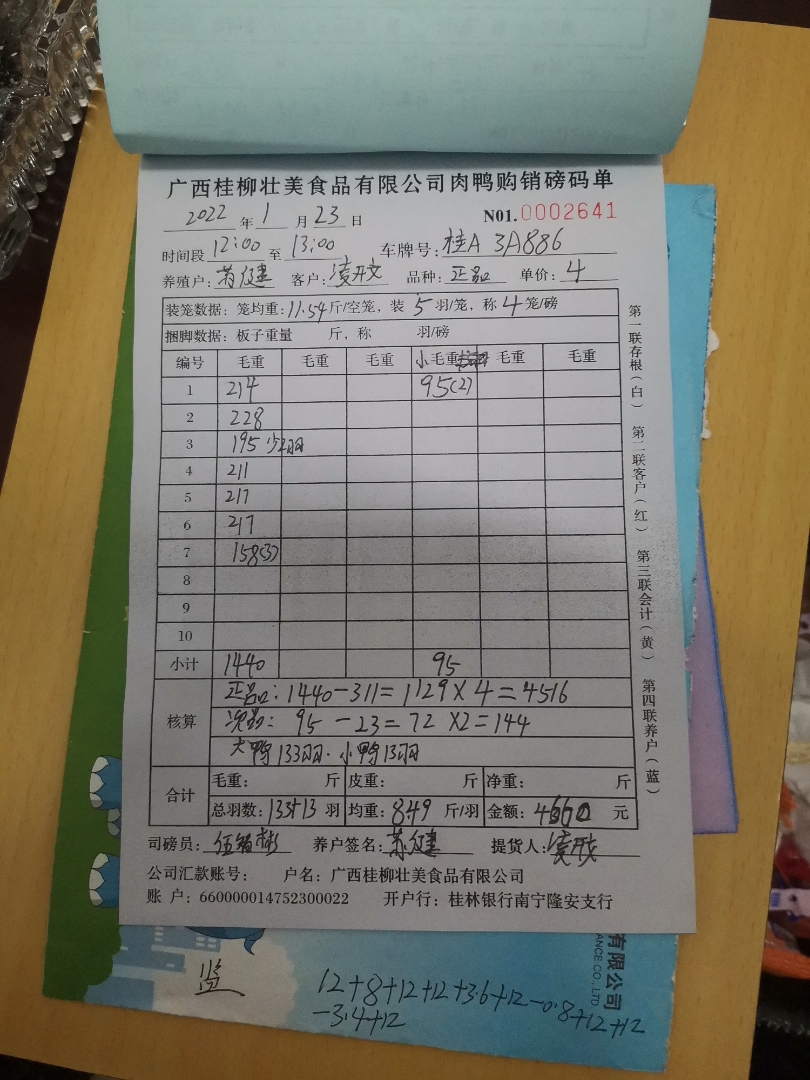 广西桂柳壮美食品有限公司肉鸭购销磅码单
2022 年 1 月 23 日 N01.0002641
时间段 12:00 至 13:00 车牌号: 桂A 3A886
养殖户: 客户: 凌开文 品种: 正品 单价: 4
装笼数据: 笼均重: 11.54 斤/空笼, 装 5 羽/笼, 称 4 笼/磅
捆脚数据: 板子重量 斤, 称 羽/磅
编号 毛重 毛重 毛重 小毛重 毛重 毛重
1 214 95(2)
2 228
3 195 少2羽
4 211
5 217
6 217
7 158(3)
8
9
10
小计 1440 95
核算 正品: 1440-311=1129×4=4516
次品: 95-23=72×2=144
大鸭133羽. 小鸭13羽
合计 毛重: 斤 皮重: 斤 净重: 斤
总羽数: 133+13 羽 均重: 849 斤/羽 金额: 4660 元
司磅员: 养户签名: 提货人:
公司汇款账号: 户名: 广西桂柳壮美食品有限公司
账 户: 660000014752300022 开户行: 桂林银行南宁隆安支行
第一联存根(白) 第二联客户(红) 第三联会计(黄) 第四联养户(蓝)
有限公司
ANCE CO., LTD
监
12+8+12+12+3.6+12-0.8+12+12
-3.4+12